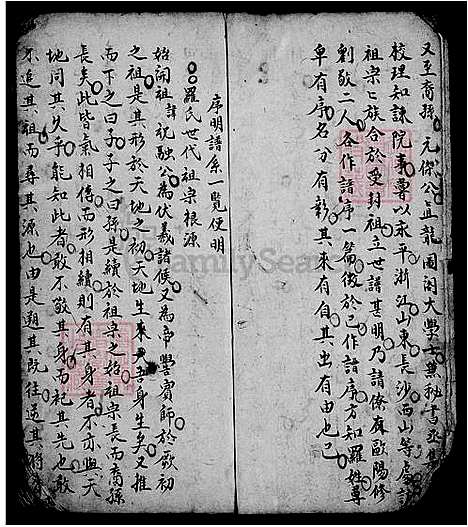 又至裔孫 元傑公直龍圖閣大學士兼秘書丞集
校理知諫院事尊以永平浙江山東長沙西山等處
祖宗八族合於受封祖立世譜甚明乃請僚庥歐陽修
劉敬二人各作譜序一篇傚於已作譜序方知羅姓尊
卑有序名分有彰其來有自其出有由也已
序明譜系一覽便明
羅氏世代祖宗根源
始開祖諱祝融公為伏羲諸侯又為帝嚳賓師於歌初
之祖是其形於天地之初天地生來人吾身生矣又推
而下之曰子子之曰孫是續於祖宗之始祖宗長而裔孫
長矣此皆氣相傳而形相續則有其身者不亦與天
地同其久乎能知此者敢不敬其身而祀其先也敢
不追其祖而尋其源也由是題其既往迄其將
FamilySearch